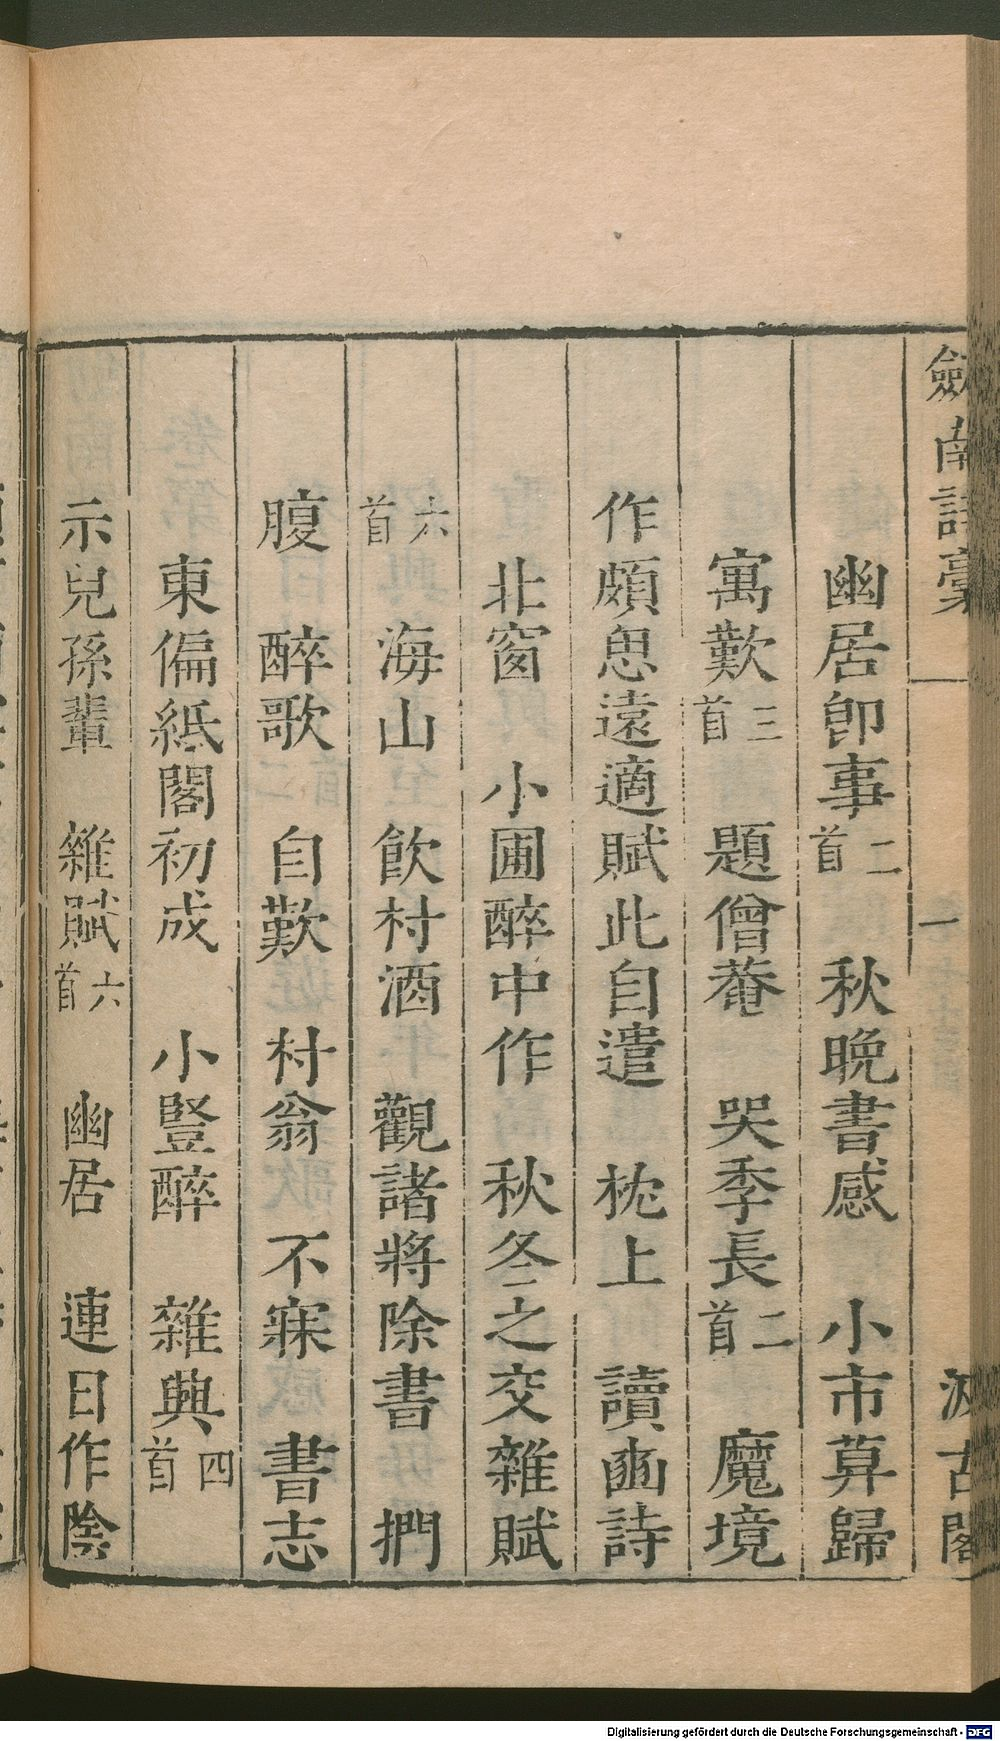 劔南詩稾 一 汲古閣
幽居即事二首 秋晚書感 小市暮歸
寓歎三首 題僧菴 哭季長二首 魔境
作頗思遠適賦此自遣 枕上 讀豳詩
北窗 小圃醉中作 秋冬之交雜賦
六首 海山 飲村酒 觀諸將除書 捫
腹 醉歌 自歎 村翁 不寐 書志
東偏紙閣初成 小豎醉 雜興四首
示兒孫輩 雜賦六首 幽居 連日作陰
Digitalisierung gefördert durch die Deutsche Forschungsgemeinschaft - DFG